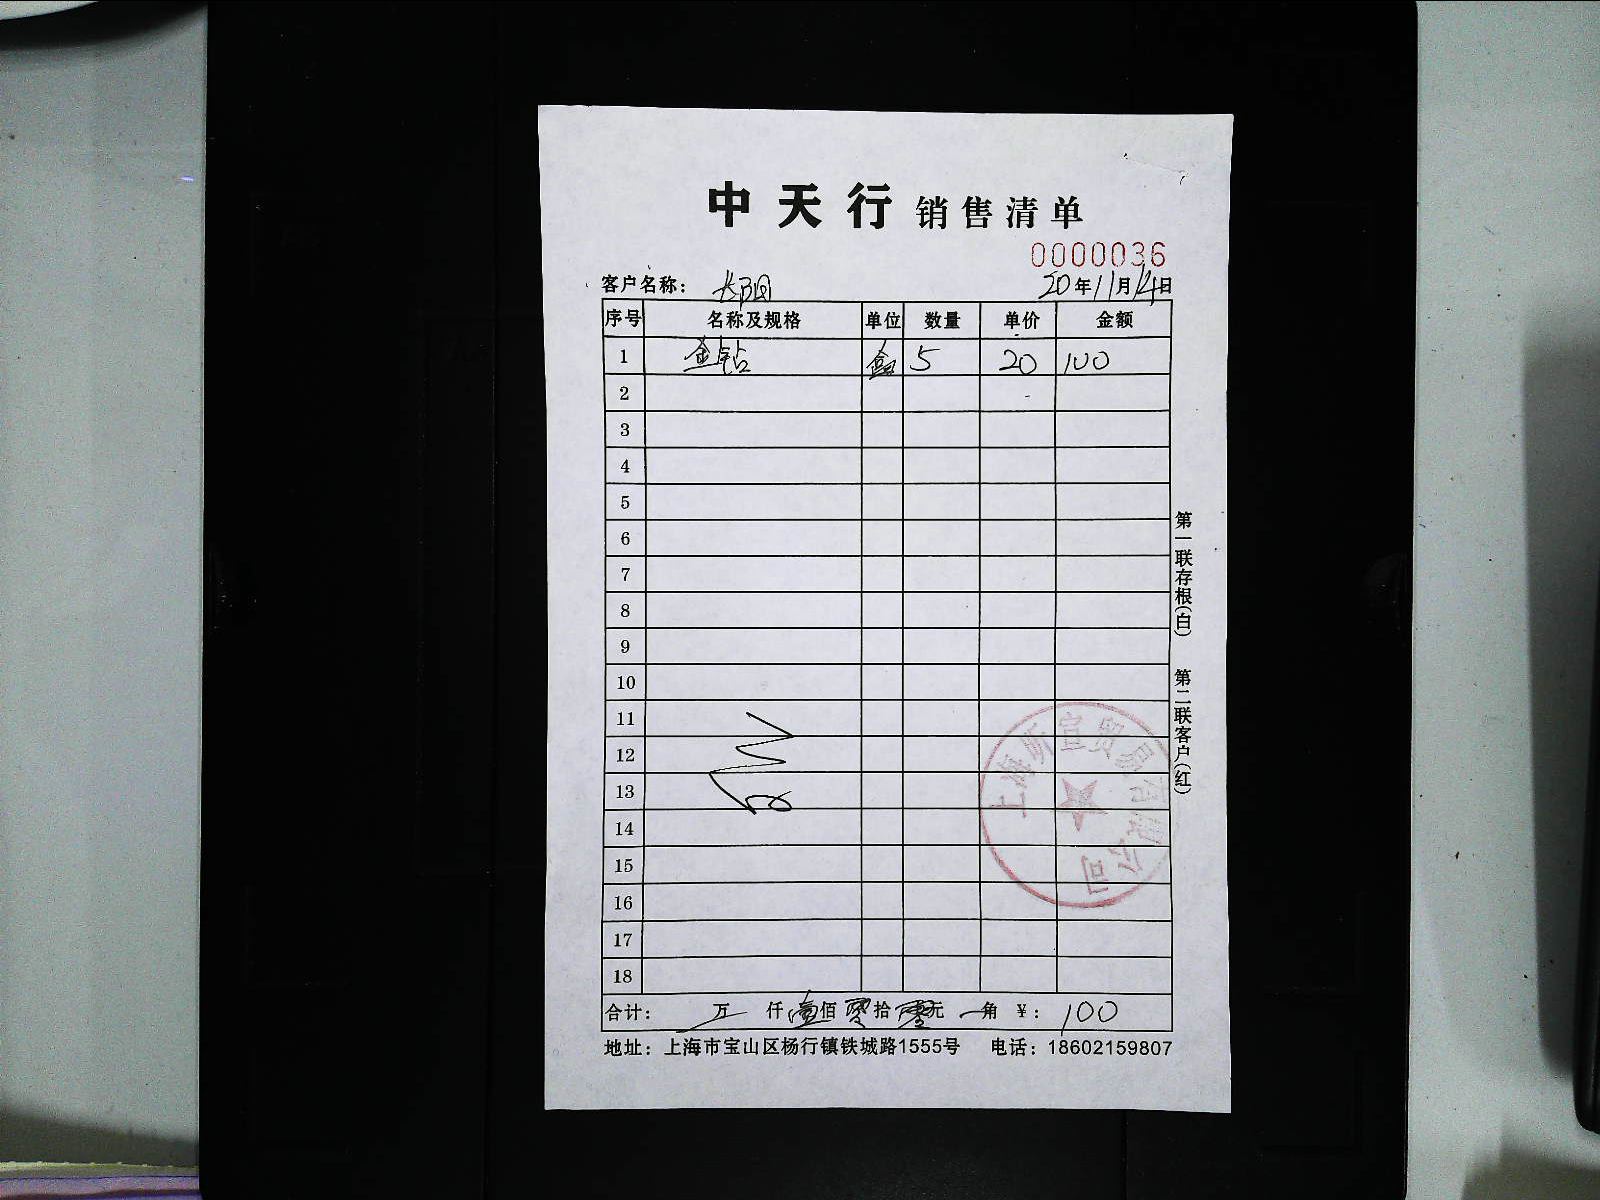 中天行 销售清单
0000036
客户名称： 长阳 20年11月14日
序号 名称及规格 单位 数量 单价 金额
1 金钻 盒 5 20 100
2
3
4
5
6
7
8
9
10
11
12
13
14
15
16
17
18
合计： 万 仟 壹佰 零拾 零元 角 ￥：100
地址：上海市宝山区杨行镇铁城路1555号 电话：18602159807
第一联存根(白) 第二联客户(红)
上海昕宣贸易有限公司